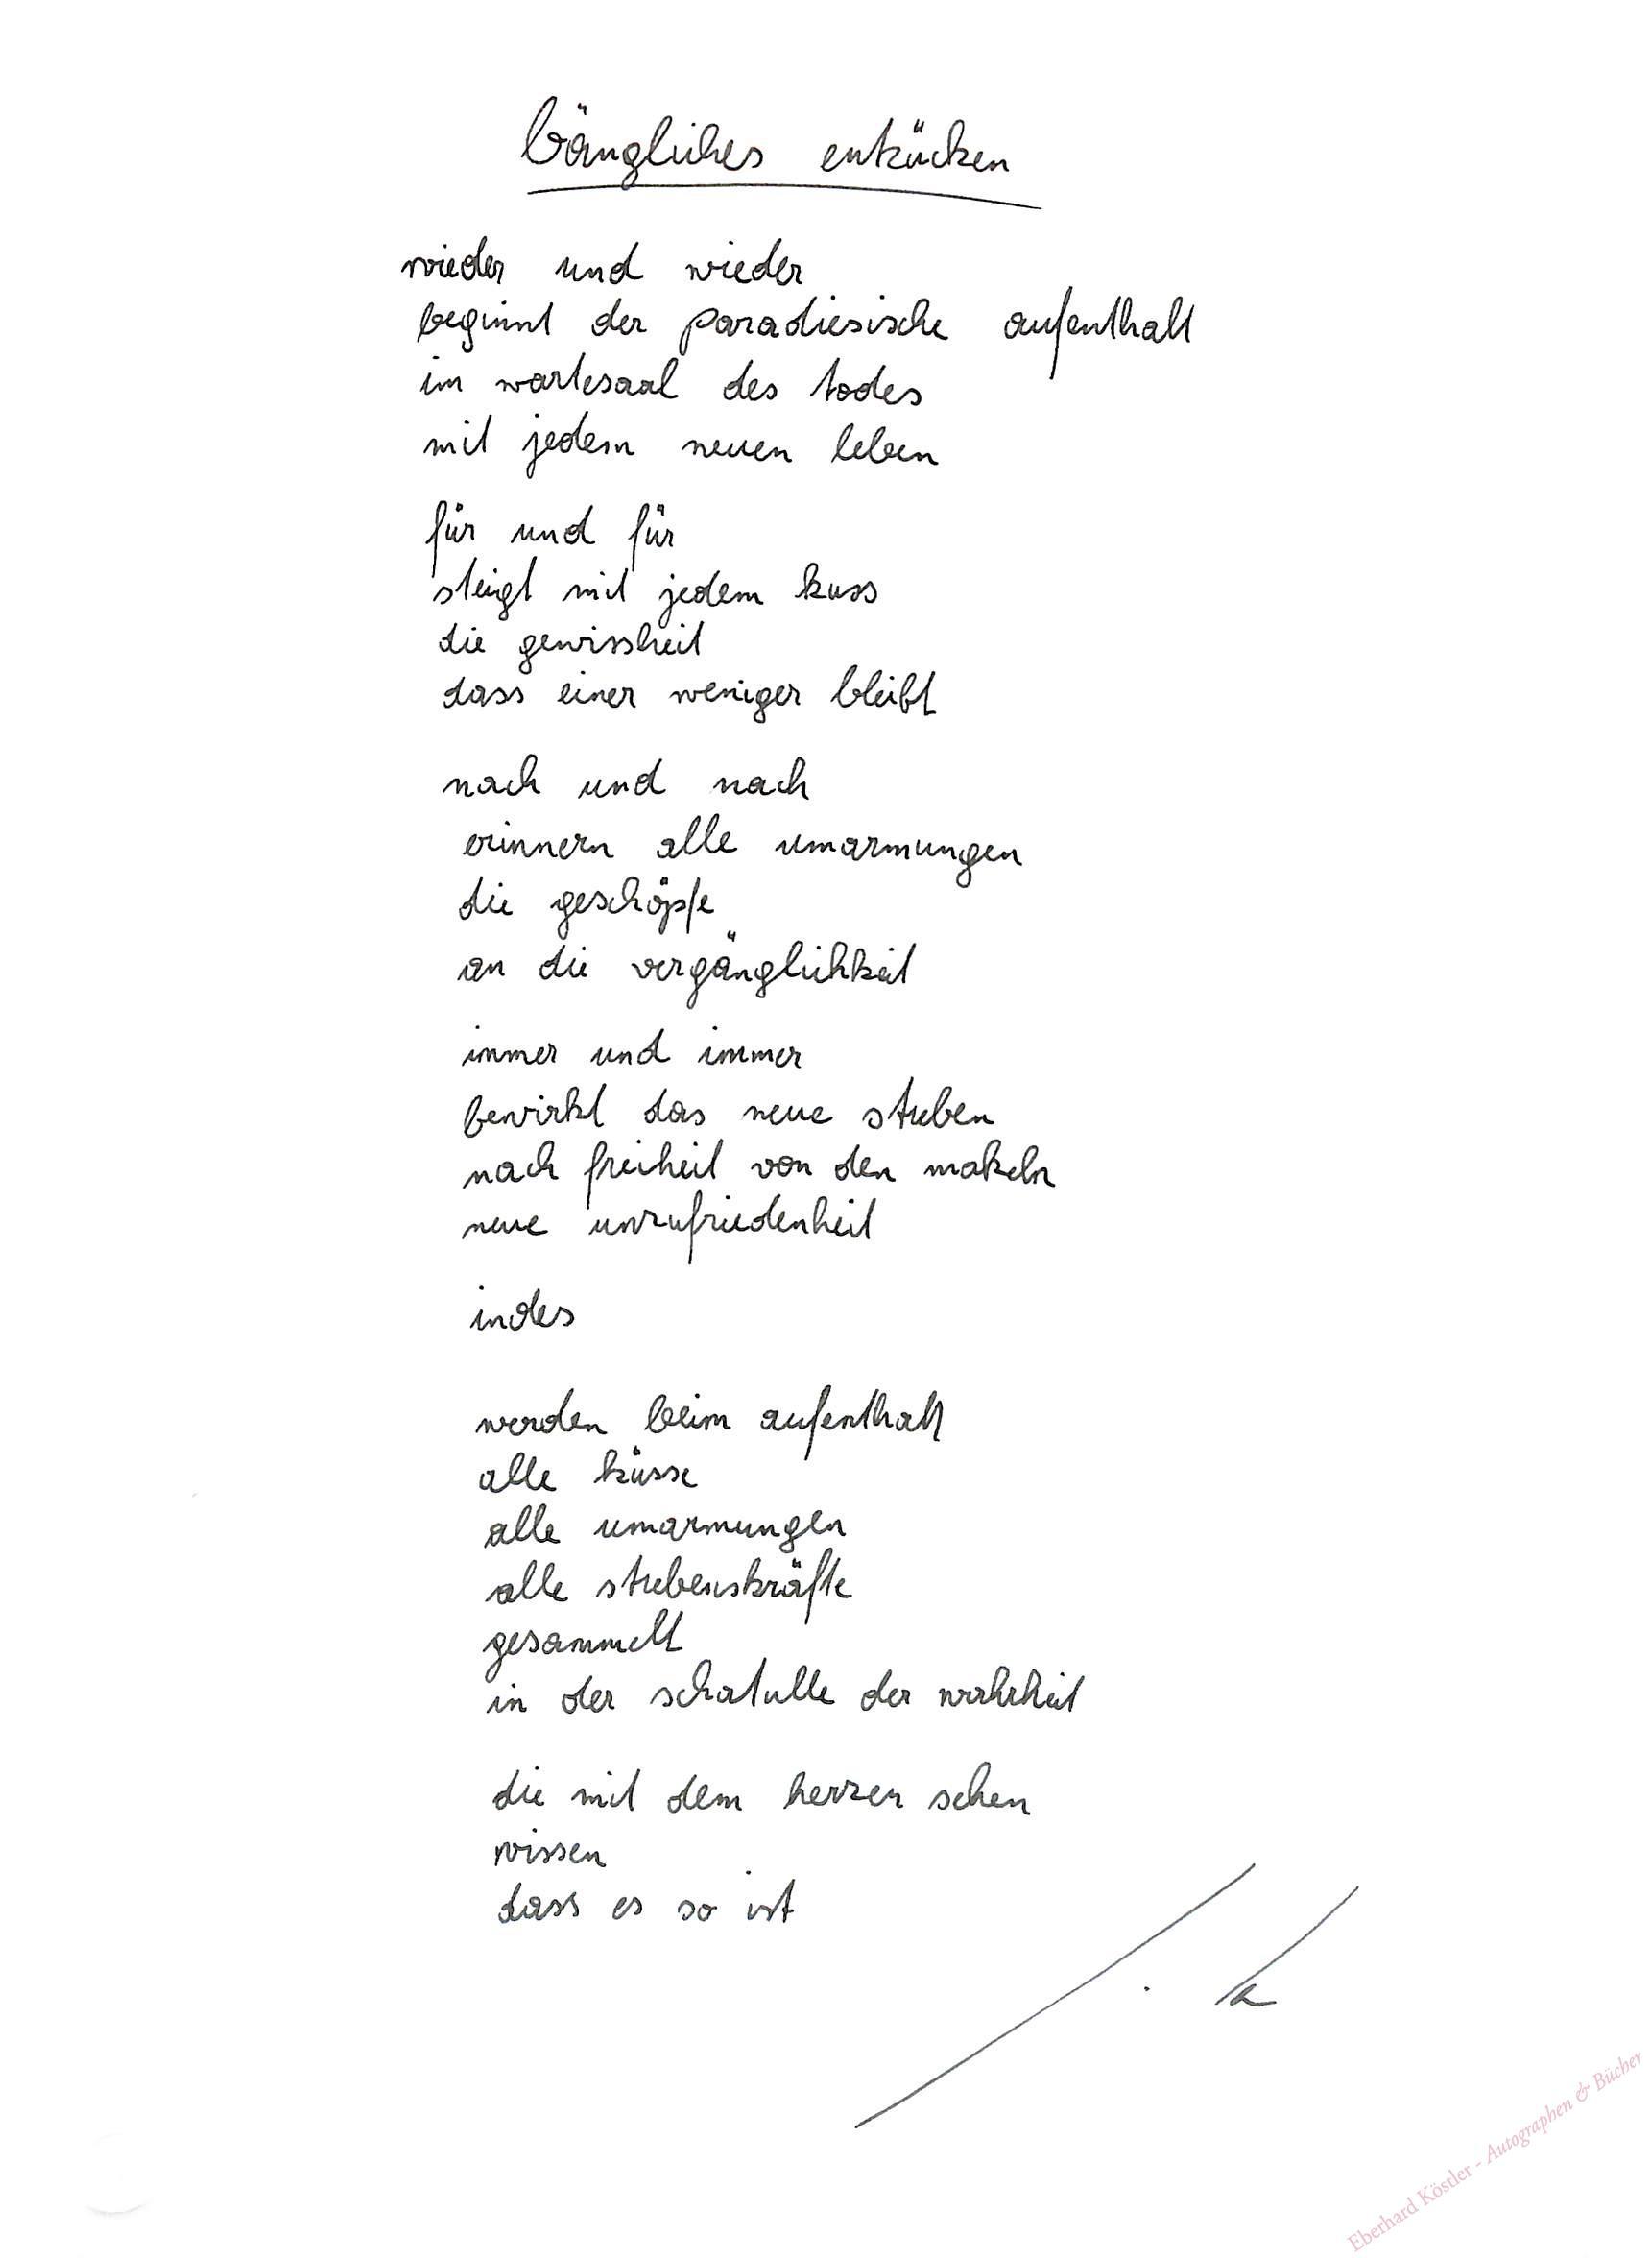 bängliches entzücken
wieder und wieder
beginnt der paradiesische aufenthalt
im wartesaal des todes
mit jedem neuen leben
für und für
steigt mit jedem kuss
die gewissheit
dass einer weniger bleibt
nach und nach
erinnern alle umarmungen
die geschöpfe
an die vergänglichkeit
immer und immer
bewirkt das neue streben
nach freiheit von den makeln
neue unzufriedenheit
indes
werden beim aufenthalt
alle küsse
alle umarmungen
alle strebenskräfte
gesammelt
in der schatulle der wahrheit
die mit dem herzen sehen
wissen
dass es so ist
Eberhard Köstler - Autographen & Bücher